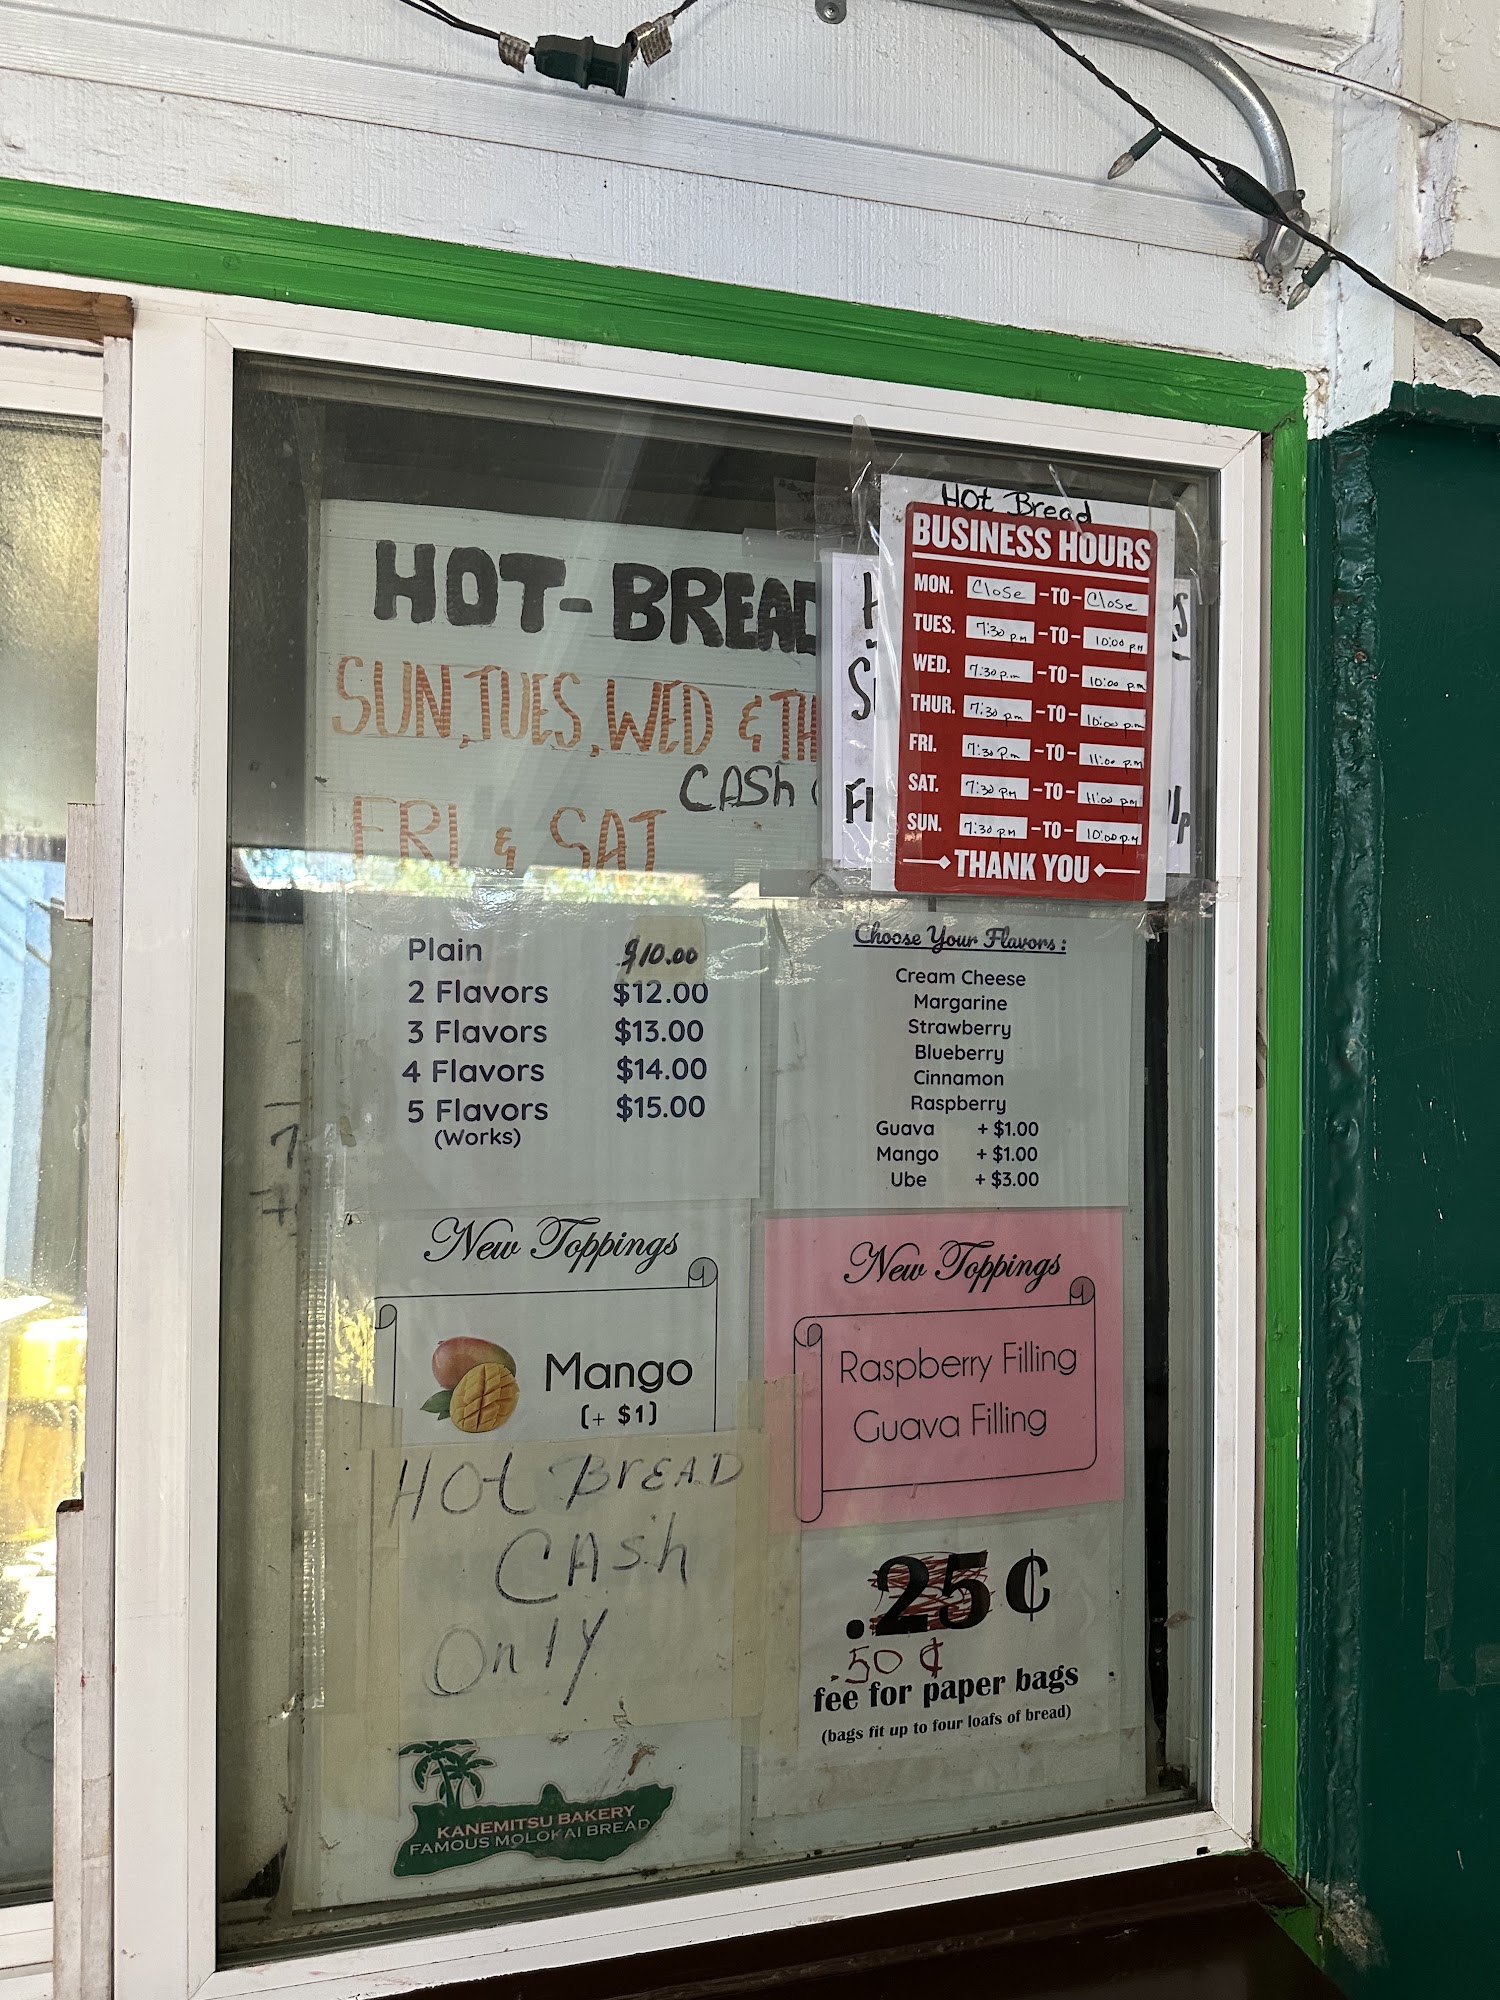 HOT-BREAD
SUN, TUES, WED & TH
CASH
FRI & SAT
Hot Bread
BUSINESS HOURS
MON. Close -TO- Close
TUES. 7:30 pm -TO- 10:00 pm
WED. 7:30 p.m -TO- 10:00 p.m
THUR. 7:30 p.m -TO- 10:00 p.m
FRI. 7:30 p.m -TO- 11:00 p.m
SAT. 7:30 pm -TO- 11:00 pm
SUN. 7:30 pm -TO- 10:00 p.m
THANK YOU
Plain $10.00
2 Flavors $12.00
3 Flavors $13.00
4 Flavors $14.00
5 Flavors $15.00
(Works)
Choose Your Flavors:
Cream Cheese
Margarine
Strawberry
Blueberry
Cinnamon
Raspberry
Guava + $1.00
Mango + $1.00
Ube + $3.00
New Toppings
Mango
(+ $1)
New Toppings
Raspberry Filling
Guava Filling
HOt BrEAD
CASh
Only
.25¢
.50¢
fee for paper bags
(bags fit up to four loafs of bread)
KANEMITSU BAKERY
FAMOUS MOLOKAI BREAD